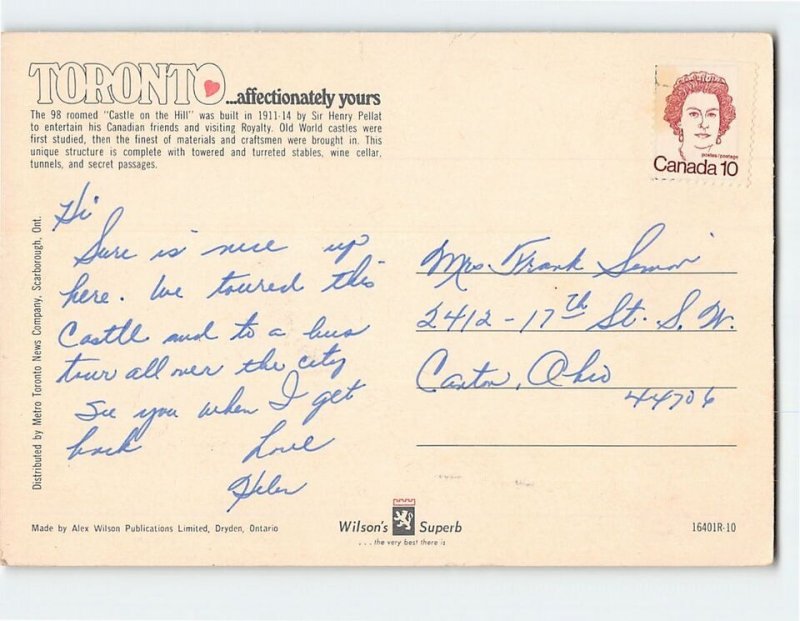 TORONTO
...affectionately yours
The 98 roomed "Castle on the Hill" was built in 1911-14 by Sir Henry Pellat
to entertain his Canadian friends and visiting Royalty. Old World castles were
first studied, then the finest of materials and craftsmen were brought in. This
unique structure is complete with towered and turreted stables, wine cellar,
tunnels, and secret passages.
Distributed by Metro Toronto News Company, Scarborough, Ont.
Hi
Sure is nice up
here. We toured this
Castle and to a bus
tour all over the city
See you when I get
back Love
Helen
postes/postage
Canada 10
Mrs. Frank Simon
2412-17th St. S.W.
Canton, Ohio
44706
Made by Alex Wilson Publications Limited, Dryden, Ontario
Wilson's Superb
... the very best there is
16401R-10